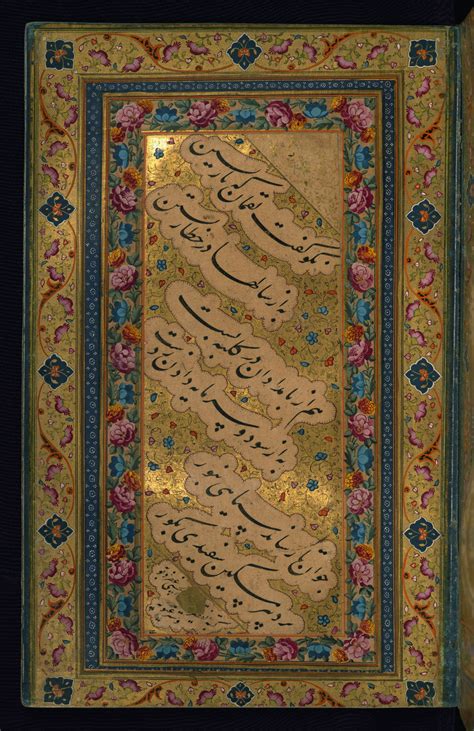 نکو گفت لقمان که نازیستن
به از سالها در خطا زیستن
هم از بامدادان در کلبه بست
به از سود و سرمایه دادن ز دست
جوان تا رساند سیاهی بنور
برد پیر مسکین سفیدی بگور